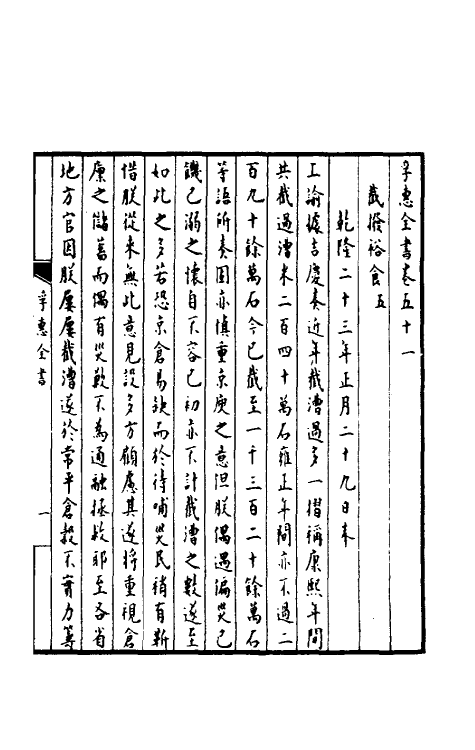 孚惠全書卷五十一
截撥裕食五
乾隆二十三年正月二十九日奉
上諭據吉慶奏近年截漕過多一摺稱康熙年間
共截過漕米二百四十萬石雍正年間亦不過二
百九十餘萬石今已截至一千三百二十餘萬石
等語所奏固亦慎重京庾之意但朕偶遇偏災已
饑已溺之懷自不容已初亦不計截漕之數遂至
如此之多若恐京倉易缺而於待哺災民稍有靳
惜朕從來無此意見設多方顧慮其遂將重視倉
廪之儲蓄而偶有災歉不為通融拯救耶至各省
地方官因朕屢屢截漕遂於常平倉穀不實力籌
孚惠全書
一